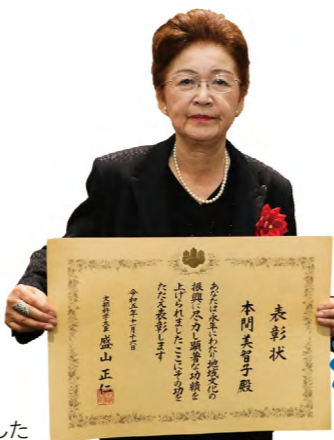 表彰状
本間美智子殿
あなたは永年にわたり地域文化の
振興に尽力し顕著な功績を
上げられましたここにその功を
たたえ表彰します
令和五年十二月十六日
文部科学大臣 盛山正仁
した